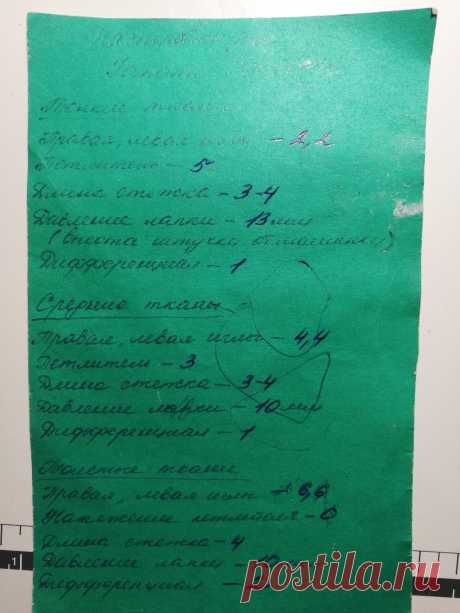 Тонкие ткани
Правая, левая иглы - 2,2
Петлитель - 5
Длина стежка - 3-4
Давление лапки - 13 мм
(высота штучка от машинки)
Дифференциал - 1
Средние ткани
Правая, левая иглы - 4,4
Петлитель - 3
Длина стежка - 3-4
Давление лапки - 10 мм
Дифференциал - 1
Толстые ткани
Правая, левая иглы - 6,6
Натяжение петлителя - 0
Длина стежка - 4
Давление лапки - 10
Дифференциал -
1
postila.ru